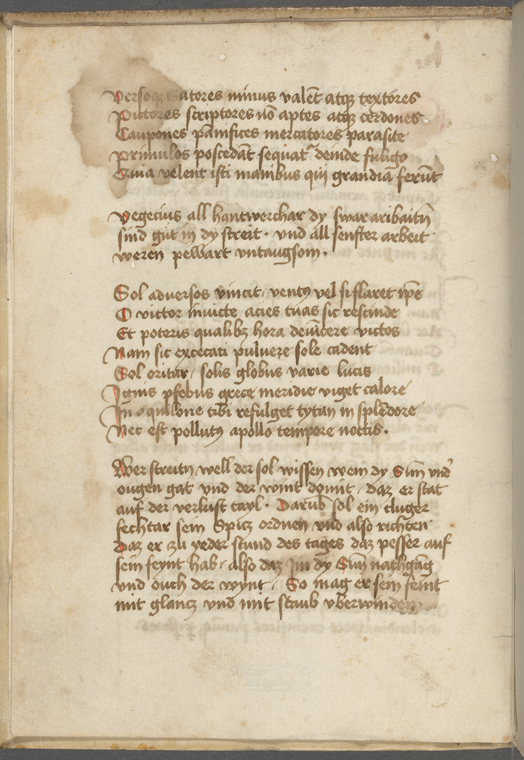 Versoqz Satores minus valēt atqz textores
Pictores scriptores nō aptes atqz cerdones
Caupones panifices mercatores parasite
Primulos poscedāt sequat deinde fuligo
Quia velent isti manibus qui grandia ferūt
Vegecius all hantwerchar dy swar aribaitn̄
sind gut in dy streit · vnd all senfter arbeit
weren pessart vntaugsom ·
Sol adversos vincit ventꝰ vel si flaret ip̄e
O victor invicte acies tuas sic rescinde
Et poteris qualibz hora devīcere victos
Nam sic excecati pulvueze sole cadent
Sol oritur solis globus varie lucis
Ignis phebus grece meridie viget calore
In aquilone tibi refulget tytan in splēdore
Nec est pollutꝰ apollo tempore noctis ·
Wer streitn̄ well der sol wissen wem dy Sun̄ vnd
ougen gat vnd der wint do mit · daz er stat
auf der verlust tayl · Darūb sol ein cluger
fechtar sein Spicz ordnen vnd also richten
Daz er zu yeder stund des tages daz pesser auf
sein feynt hab · also daz Im dy Sun̄ nachgāg
vnd ouch der wynt · So mag er sein feint
mit glancz vnd mit staub vberwinden